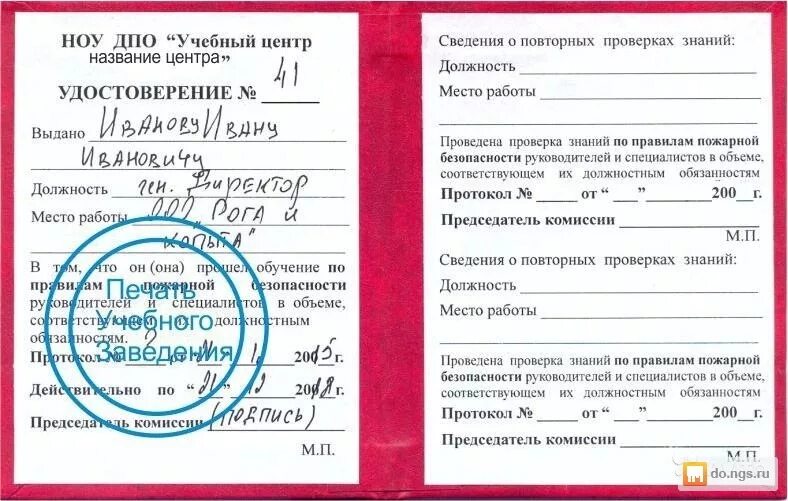 НОУ ДПО “Учебный центр
название центра”
УДОСТОВЕРЕНИЕ № 41
Выдано Иванову Ивану
Ивановичу
Должность ген. Директор
Место работы ООО „Рога и
копыта"
В том, что он (она) прошел обучение по
правилам пожарной безопасности
руководителей и специалистов в объеме,
соответствующем их должностным
обязанностям.
Протокол № 2 от “ ” 200 г.
Действительно по “ ” 200 г.
Председатель комиссии (подпись)
М.П.
Печать
Учебного
Заведения
Сведения о повторных проверках знаний:
Должность
Место работы
Проведена проверка знаний по правилам пожарной
безопасности руководителей и специалистов в объеме,
соответствующем их должностным обязанностям
Протокол № от “ ” 200 г.
Председатель комиссии
М.П.
Сведения о повторных проверках знаний:
Должность
Место работы
Проведена проверка знаний по правилам пожарной
безопасности руководителей и специалистов в объеме,
соответствующем их должностным обязанностям
Протокол № от “ ” 200 г.
Председатель комиссии
М.П.
do.ngs.ru